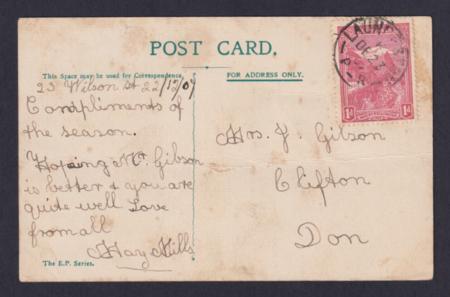 POST CARD.
This Space may be used for Correspondence.
FOR ADDRESS ONLY.
23 Wilson St 22/12/09
Compliments of
the season.
Hoping Mr. Gibson
is better & you are
quite well Love
from all
May Mills
The E.P. Series.
Mrs. J. Gibson
Clifton
Don
LAUN
DE 23
1D 1D